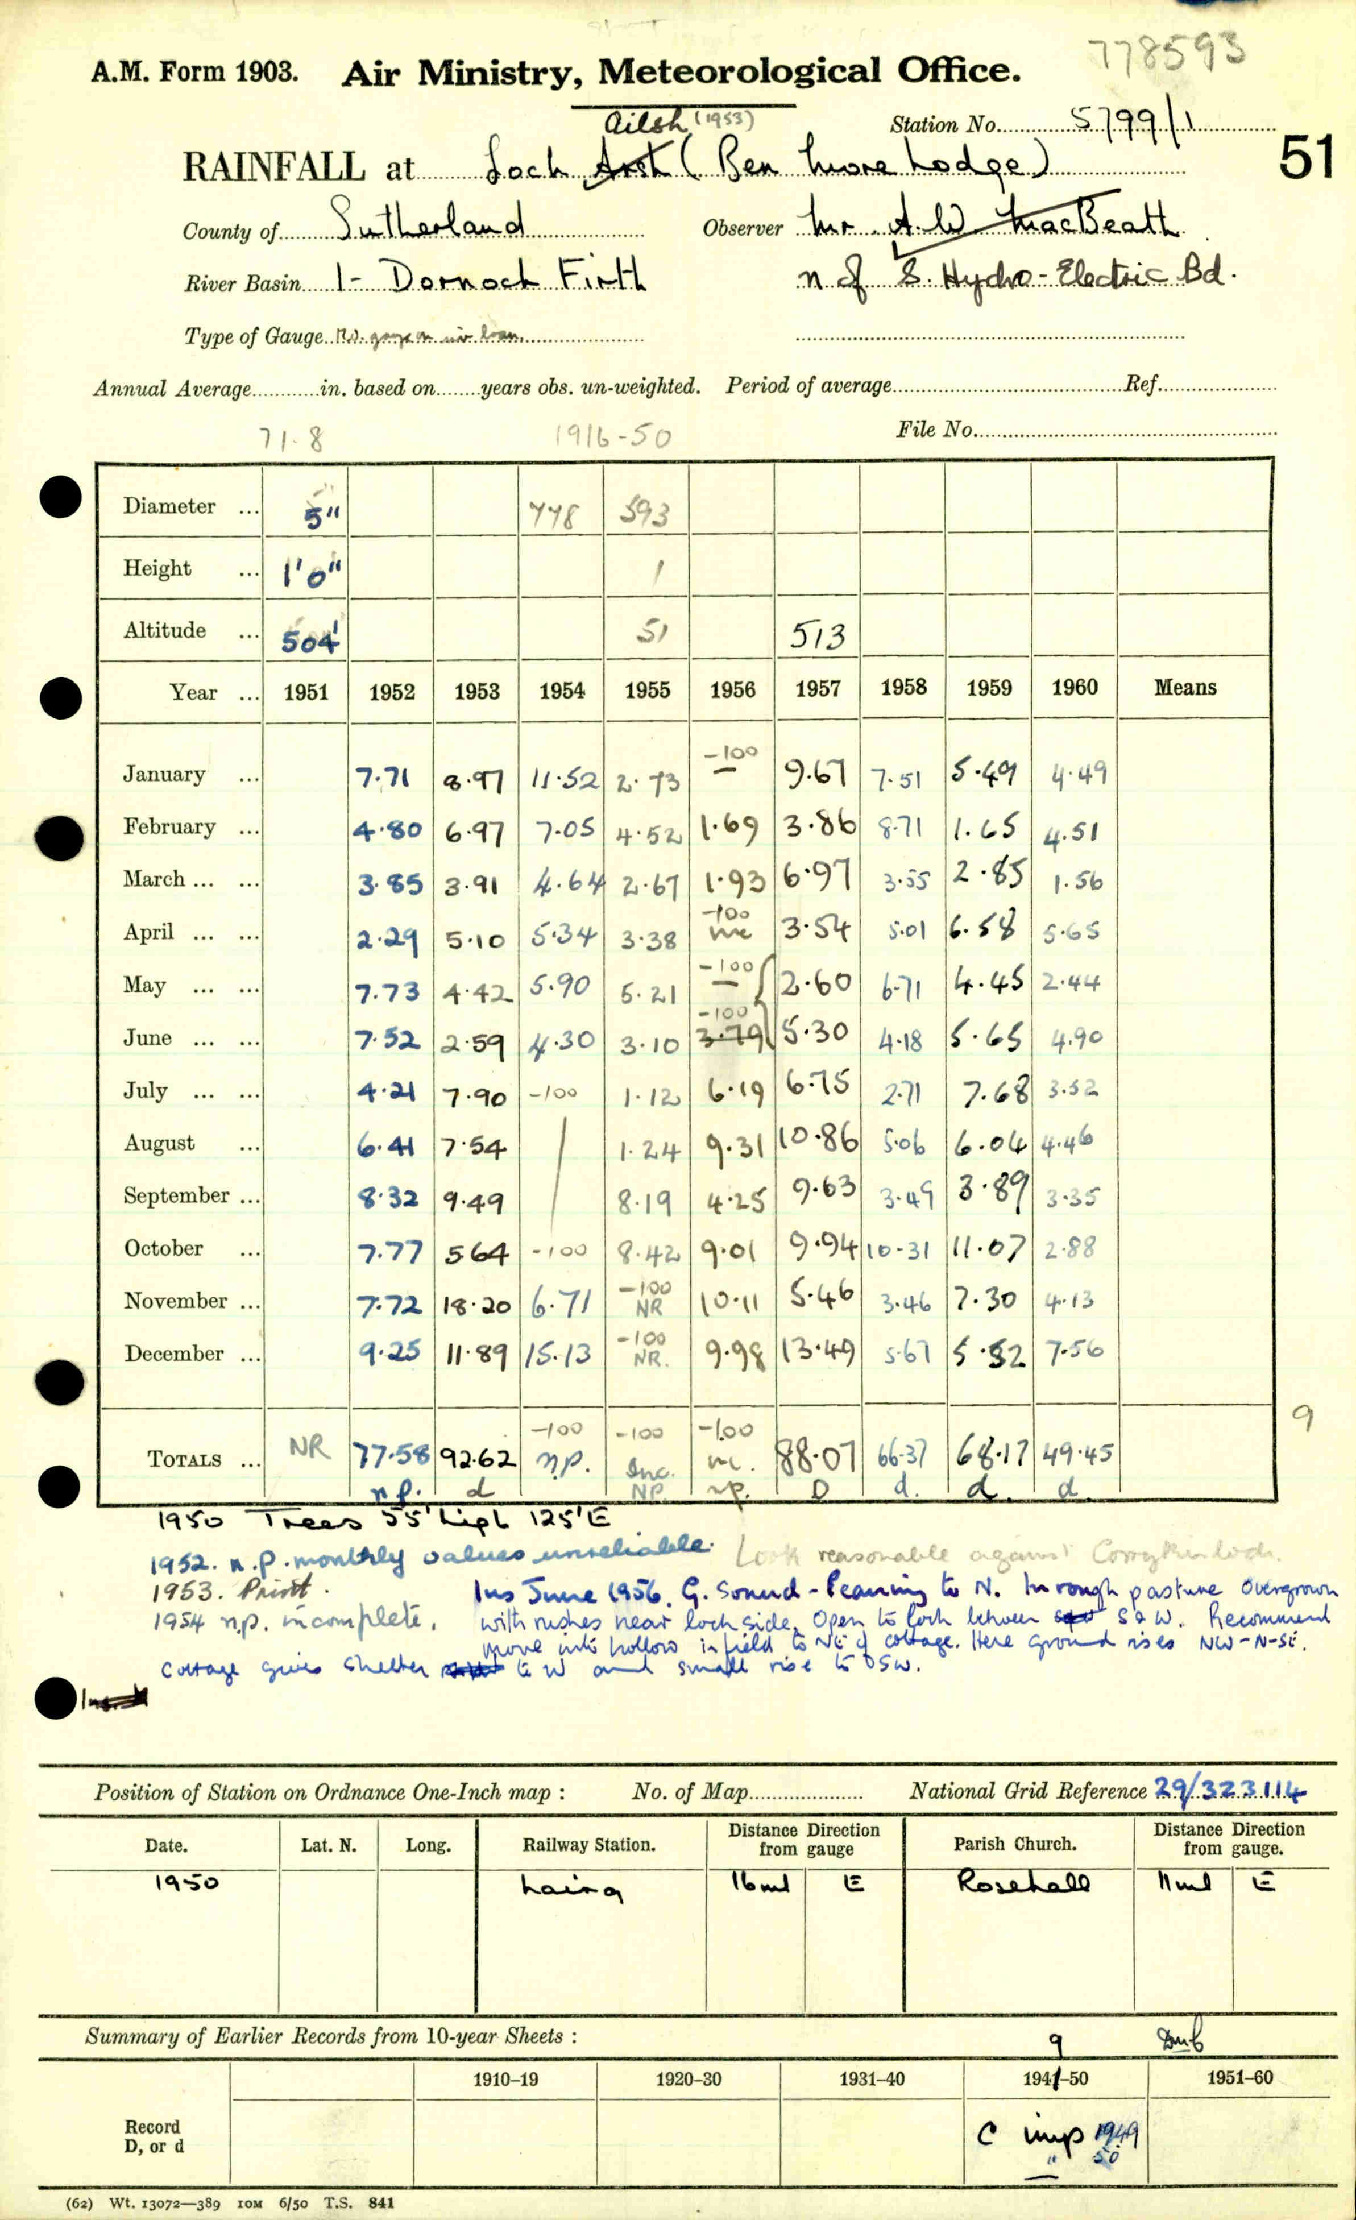 778593
A.M. Form 1903. Air Ministry, Meteorological Office.
Ailsh (1953)
Station No. 5799/1
RAINFALL at Loch (Ben More Lodge)
51
County of Sutherland Observer Mr. A.W. MacBeath
River Basin 1- Dornoch Firth N of S. Hydro-Electric Bd.
Type of Gauge gauge on loan.
Annual Average in. based on years obs. un-weighted. Period of average Ref.
71.8 1916-50 File No.
Diameter ... 5" 778 593
Height ... 1'0" 1
Altitude ... 504' 51 513
Year ... 1951 1952 1953 1954 1955 1956 1957 1958 1959 1960 Means
January ... 7.71 8.97 11.52 2.73 -100 — 9.67 7.51 5.49 4.49
February ... 4.80 6.97 7.05 4.52 1.69 3.86 8.71 1.65 4.51
March ... ... 3.85 3.91 4.64 2.67 1.93 6.97 3.55 2.85 1.56
April ... ... 2.29 5.10 5.34 3.38 -100 inc 3.54 5.01 6.58 5.65
May ... ... 7.73 4.42 5.90 5.21 -100 — 2.60 6.71 4.45 2.44
June ... ... 7.52 2.59 4.30 3.10 -100 3.79 5.30 4.18 5.65 4.90
July ... ... 4.21 7.90 -100 1.12 6.19 6.75 2.71 7.68 3.52
August ... 6.41 7.54 1.24 9.31 10.86 5.06 6.04 4.46
September ... 8.32 9.49 8.19 4.25 9.63 3.49 3.89 3.35
October ... 7.77 5.64 -100 8.42 9.01 9.94 10.31 11.07 2.88
November ... 7.72 18.20 6.71 -100 NR 10.11 5.46 3.46 7.30 4.13
December ... 9.25 11.89 15.13 -100 NR. 9.98 13.49 5.67 5.52 7.56
9
TOTALS ... NR 77.58 92.62 -100 n.p. -100 Inc. -100 inc. 88.07 66.37 68.17 49.45
n.p. d NP. n.p. D d. d. d.
1950 Trees 55' high 125'E
1952. n.p. monthly values unreliable. Look reasonable against Corrykinloch.
1953. Print. Ins June 1956. G. Sound - Leaning to N. In rough pasture overgrown
1954 n.p. incomplete. with rushes near loch side. Open to loch between S & W. Recommend
move into hollow in field to NE of cottage. Here ground rises NW-N-SE.
Cottage gives shelter to W and small rise to SSW.
Ins.
Position of Station on Ordnance One-Inch map : No. of Map National Grid Reference 29/323114
Date. Lat. N. Long. Railway Station. Distance from Direction gauge Parish Church. Distance from Direction gauge.
1950 Lairg 16ml E Rosehall 11ml E
Summary of Earlier Records from 10-year Sheets :
9
1910–19 1920–30 1931–40 1941–50 1951–60
Record
D, or d
C imp 1949
" 50
(62) Wt. 13072—389 10M 6/50 T.S. 841